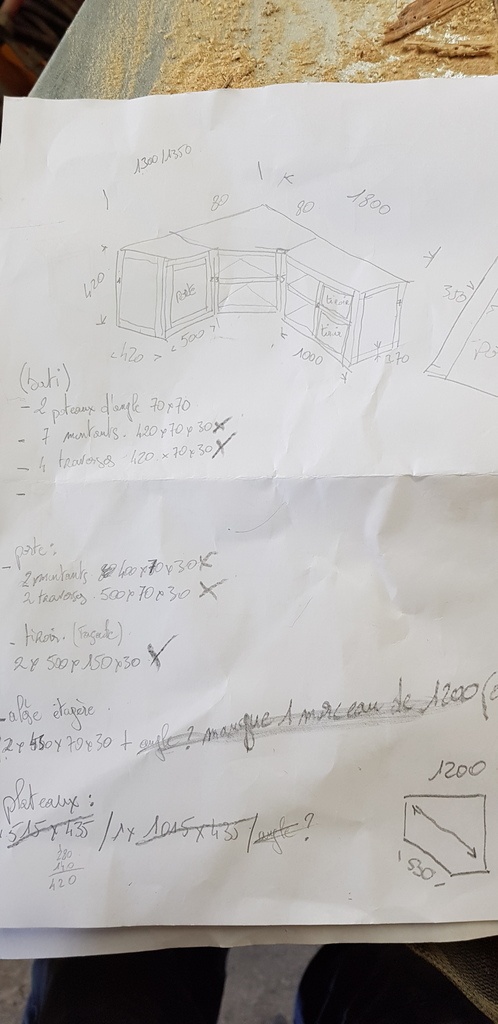 1300/1350
80 80 1800
420
porte
tiroir
tiroir
420 500 1000 370
350
(bati)
- 2 poteaux d'angle 70x70
- 7 montants. 420x70x30 X
- 4 traverses 420x70x30 X
-
- porte:
2 montants 400x70x30 X
2 traverses. 500x70x30 X
- tiroir. (façade)
2x 500x150x30 X
- alèse étagère.
2x 450x70x30 + angle? manque 1 morceau de 1200
plateaux:
515x435 / 1x 1015x435 / angle ?
280
140
420
1200
530